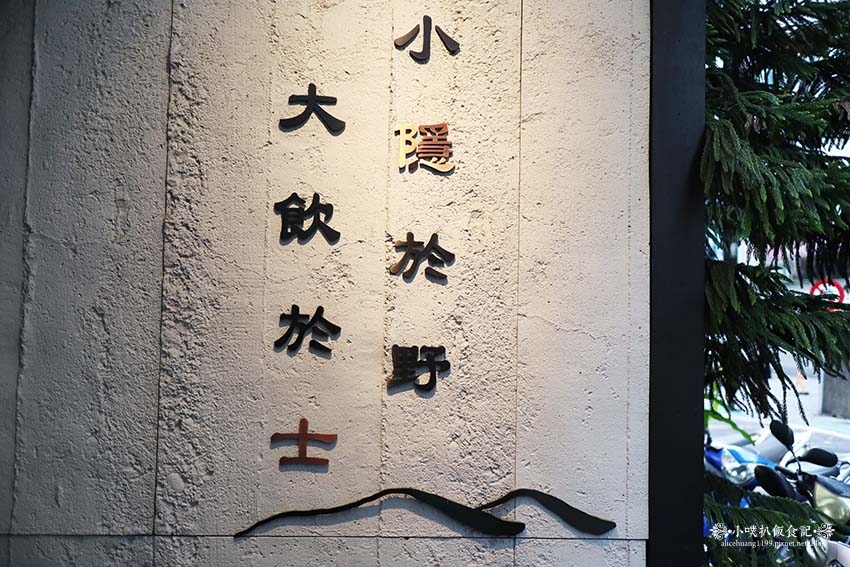 小隱於野
大飲於士
小噗趴飯食記
alicehuang1199.pixnet.net/blog